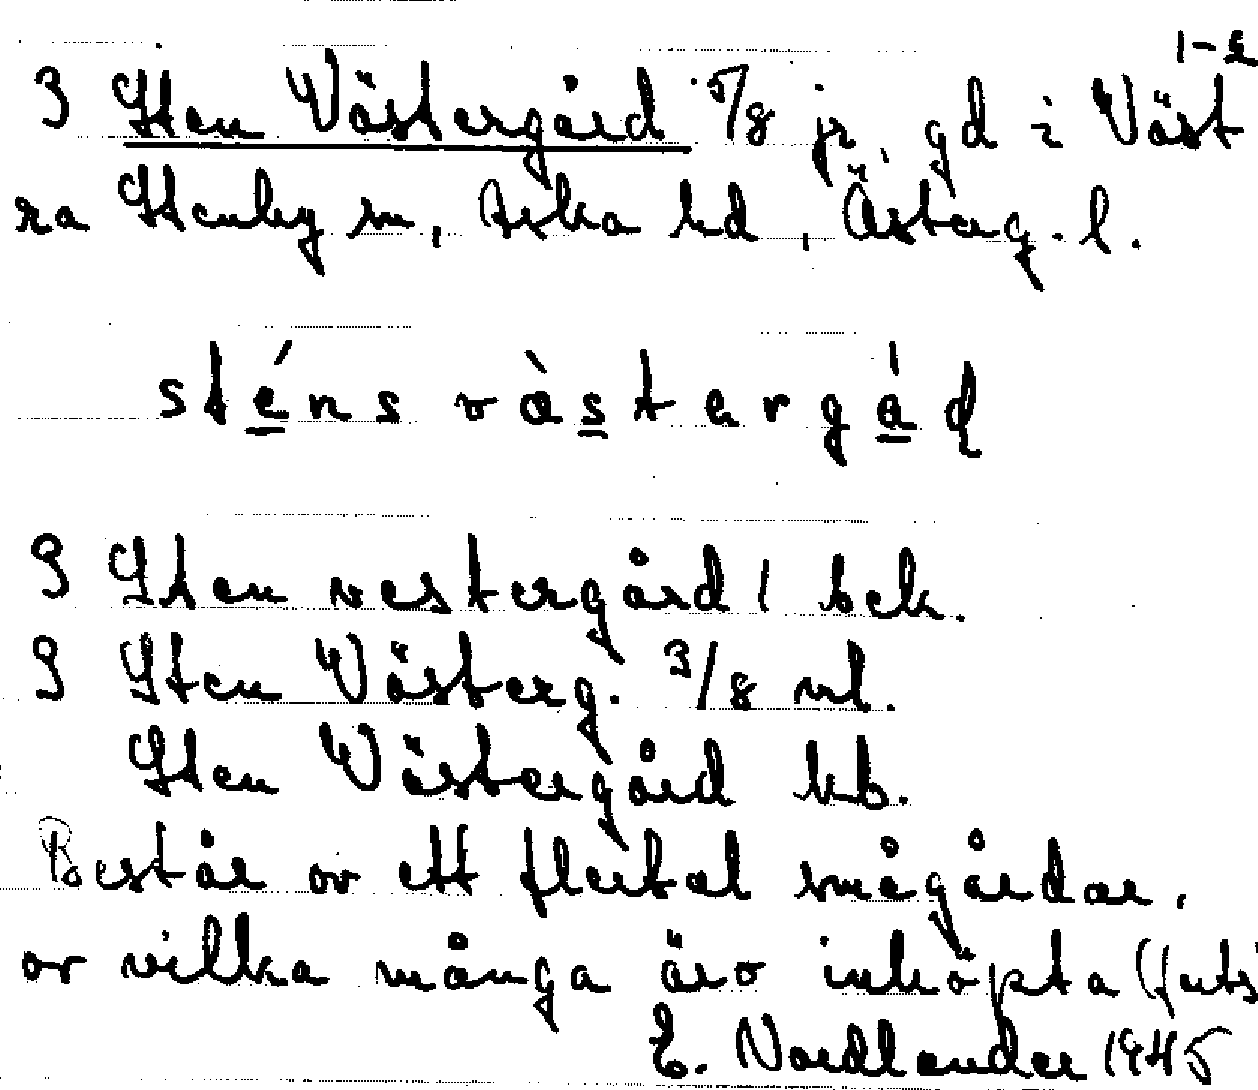 1-2
3 Sten Västergård 5/8 jr, gd i Väst
ra Stenby sn, Aska hd, Österg. l.
sténs vàstergád
3 Sten vestergård / bek.
3 Sten Västerg. 3/8 ml.
Sten Västergård kb.
Består av ett flertal smågårdar,
av vilka många äro inköpta (forts
E. Nordlander 1945